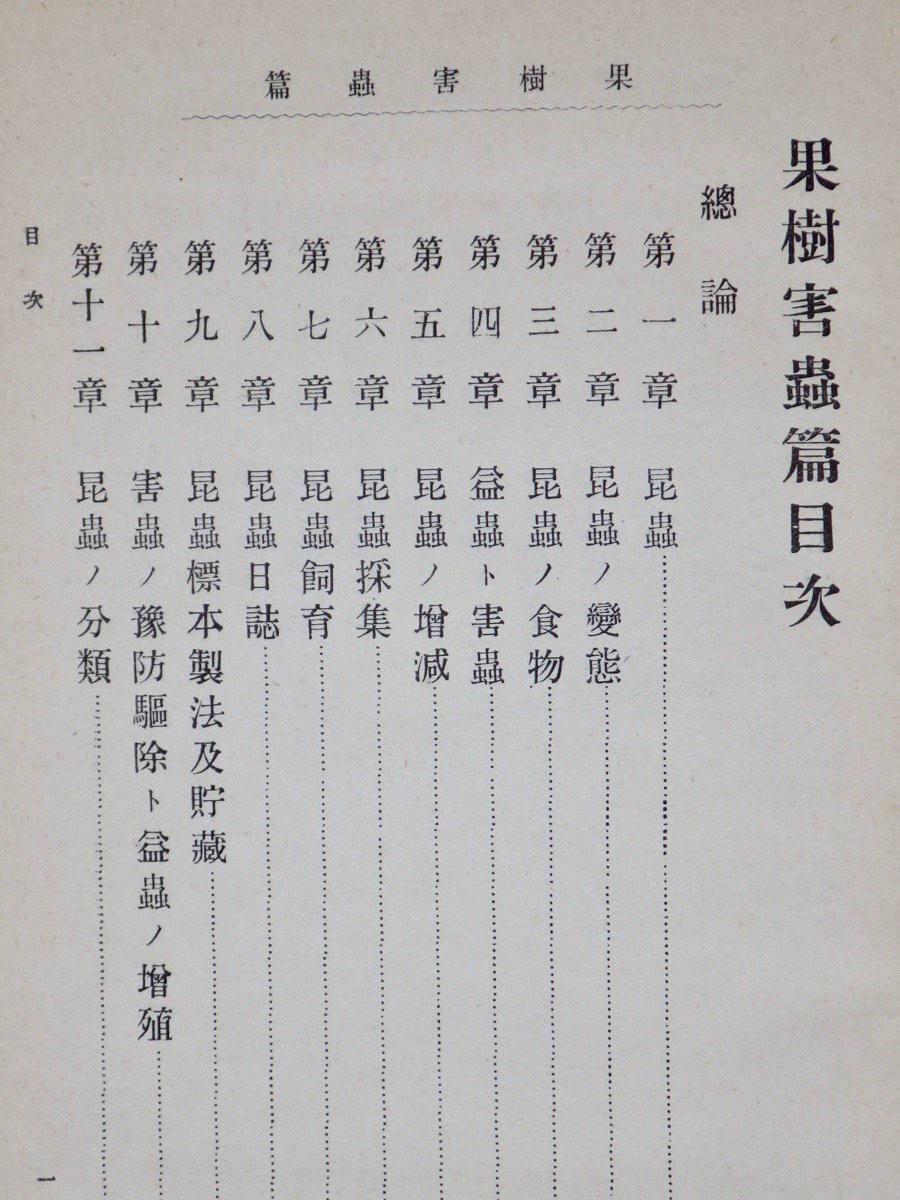 果樹害蟲篇
果樹害蟲篇目次
總論
第一章 昆蟲
第二章 昆蟲ノ變態
第三章 昆蟲ノ食物
第四章 益蟲ト害蟲
第五章 昆蟲ノ增減
第六章 昆蟲採集
第七章 昆蟲飼育
第八章 昆蟲日誌
第九章 昆蟲標本製法及貯藏
第十章 害蟲ノ豫防驅除ト益蟲ノ增殖
第十一章 昆蟲ノ分類
目次
一